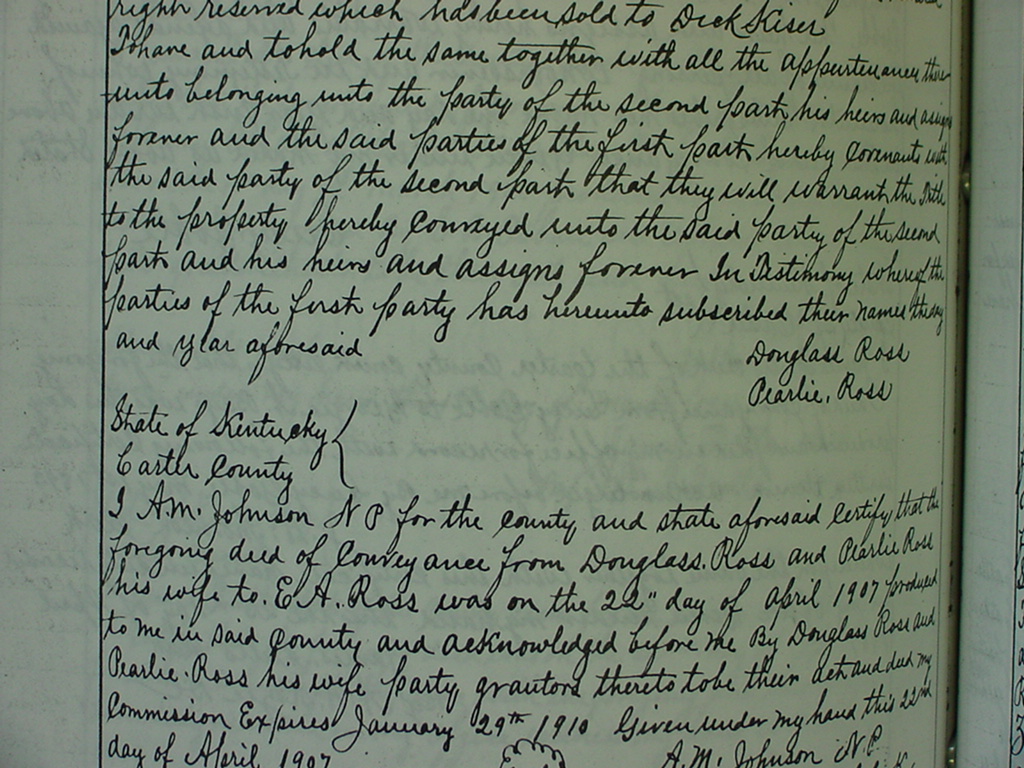 right reserved which has been sold to Dick Kiser
To have and to hold the same together with all the appurtenances there
unto belonging unto the party of the second part his heirs and assigns
forever and the said parties of the first part hereby covenants with
the said party of the second part that they will warrant the Title
to the property hereby conveyed unto the said party of the second
part and his heirs and assigns forever In Testimony whereof the
parties of the first party has hereunto subscribed their names the day
and year aforesaid
Douglass Ross
Pearlie. Ross
State of Kentucky
Carter County
I A.M. Johnson N P for the county and state aforesaid certify that the
foregoing deed of Conveyance from Douglass. Ross and Pearlie Ross
his wife to. E. A. Ross was on the 22" day of April 1907 produced
to me in said county and acknowledged before me By Douglass Ross and
Pearlie. Ross his wife party grantors thereto to be their act and deed my
Commission Expires January 29th 1910 Given under my hand this 22nd
day of April 1907
A.M. Johnson N.P.